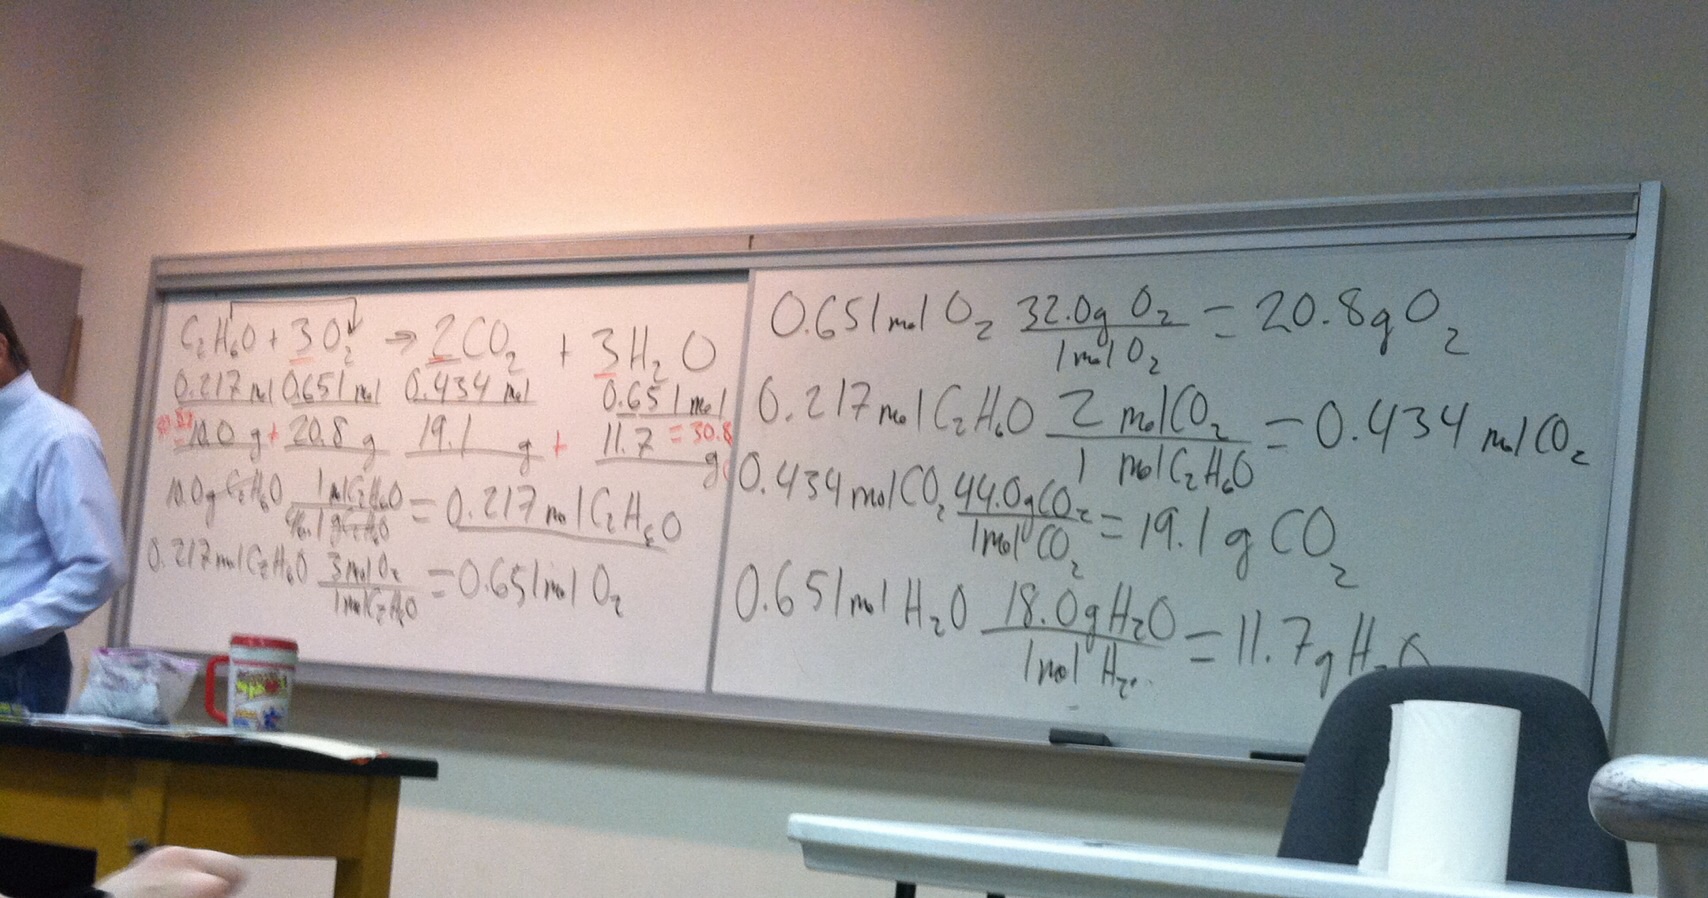 C₂H₆O + 3O₂ → 2CO₂ + 3H₂O
0.217 mol 0.651 mol 0.434 mol 0.651 mol
10.0 g + 20.8 g 19.1 g + 11.7 g = 30.8
10.0g C₂H₆O 1 mol C₂H₆O / 46.1 g C₂H₆O = 0.217 mol C₂H₆O
0.217 mol C₂H₆O 3 mol O₂ / 1 mol C₂H₆O = 0.651 mol O₂
0.651 mol O₂ 32.0g O₂ / 1 mol O₂ = 20.8g O₂
0.217 mol C₂H₆O 2 mol CO₂ / 1 mol C₂H₆O = 0.434 mol CO₂
0.434 mol CO₂ 44.0g CO₂ / 1 mol CO₂ = 19.1 g CO₂
0.651 mol H₂O 18.0g H₂O / 1 mol H₂ = 11.7g H₂O